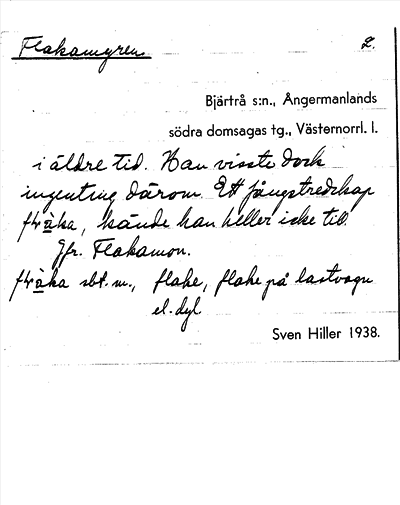 Flakamyren 2.
Bjärtrå s:n., Ångermanlands
södra domsagas tg., Västernorrl. l.
i äldre tid. Han visste dock
ingenting därom. Ett fångstredskap
flaka, kände han heller icke till.
Jfr. Flakamon.
flaka sbt. m., flake, flake på lastvagn
el. dyl.
Sven Hiller 1938.